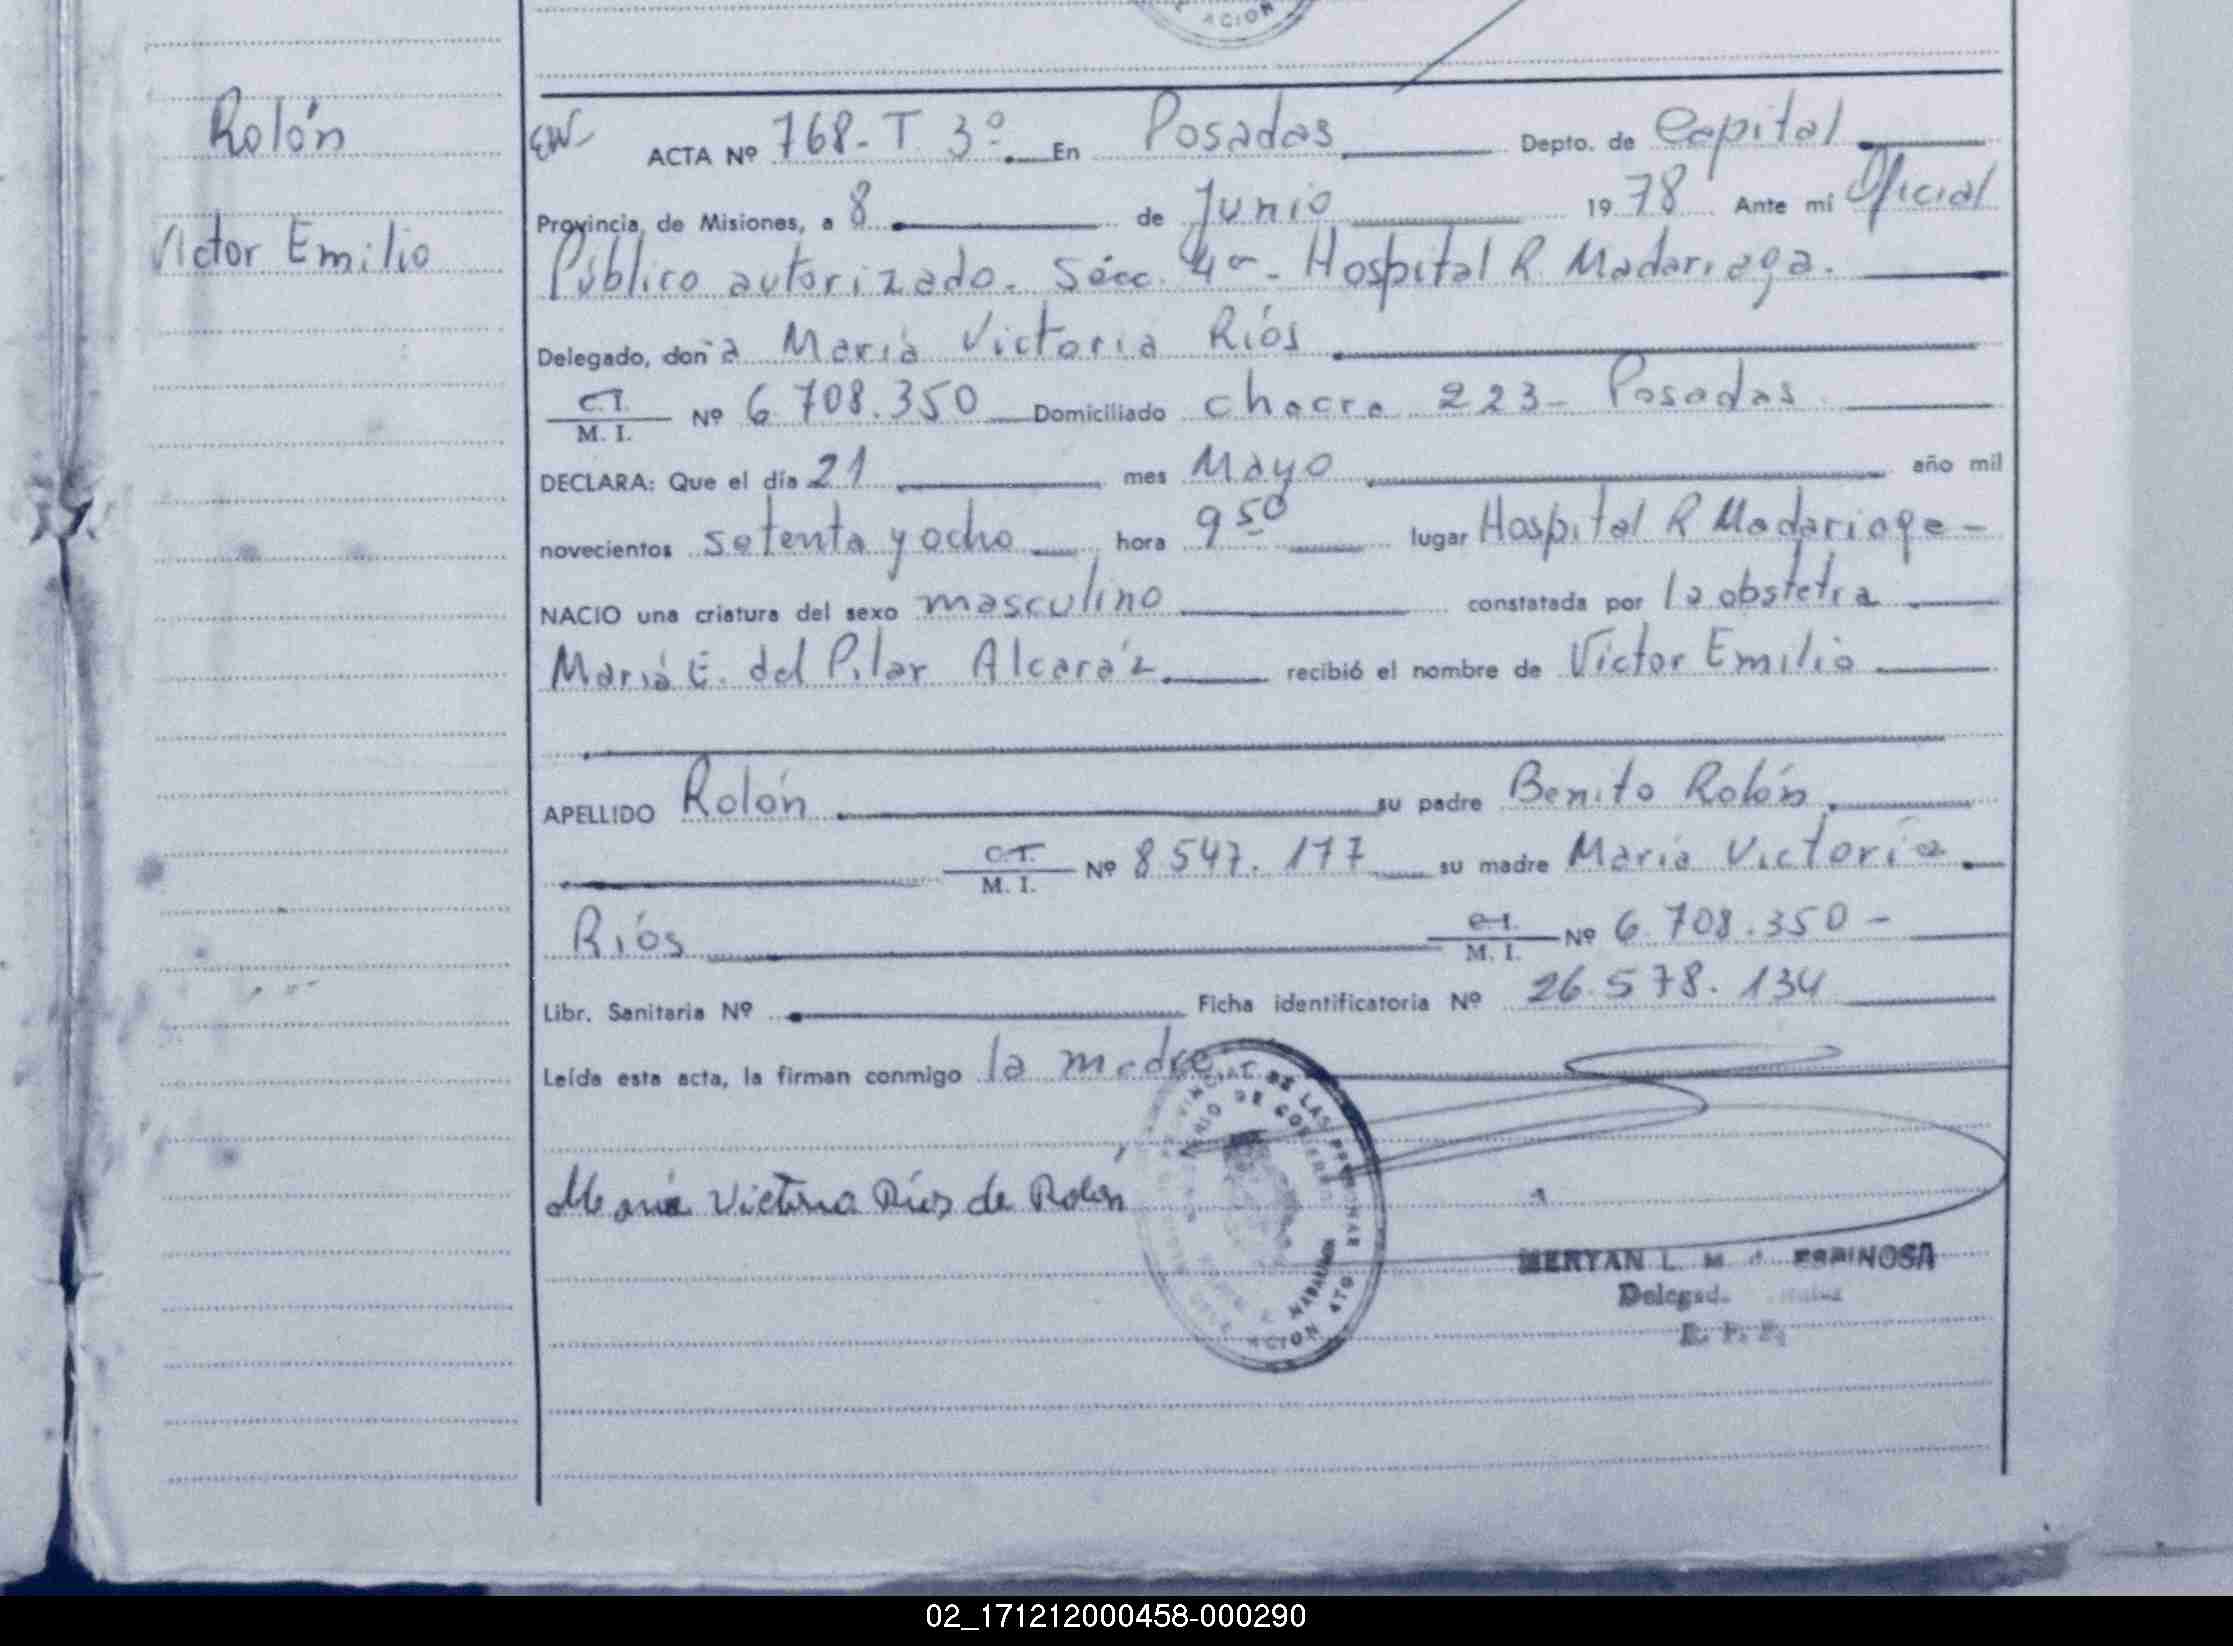 ACION
Rolón
Victor Emilio
ACTA Nº 768-T 3º. En Posadas Depto. de Capital
Provincia de Misiones, a 8 de Junio 1978 Ante mi Oficial
Público autorizado. Sécc. 4ª - Hospital R Madariaga.
Delegado, doña María Victoria Ríos
C.I.
M. I. Nº 6.708.350 Domiciliado chacra 223- Posadas
DECLARA: Que el día 21 mes Mayo año mil
novecientos setenta y ocho hora 9 50 lugar Hospital R Madariaga -
NACIO una criatura del sexo masculino constatada por la obstetra
María E. del Pilar Alcaráz recibió el nombre de Víctor Emilio
APELLIDO Rolón su padre Benito Rolón
C.I.
M. I. Nº 8547.177 su madre María Victoria
Ríos C.I.
M. I. Nº 6.708.350 -
Libr. Sanitaria Nº Ficha identificatoria Nº 26.578.134
Leída esta acta, la firman conmigo la madre
DE LAS PERSONAS
DE GOBIERNO
María Victoria Ríos de Rolón
MERYAN L. M ESPINOSA
Delegad.
02_171212000458-000290